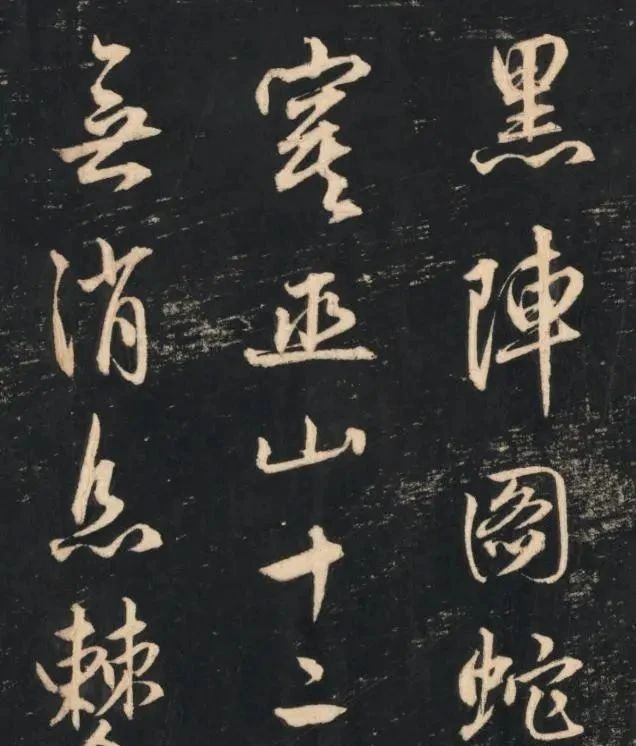 黑陣圖蛇
寒巫山十二
無消息棘